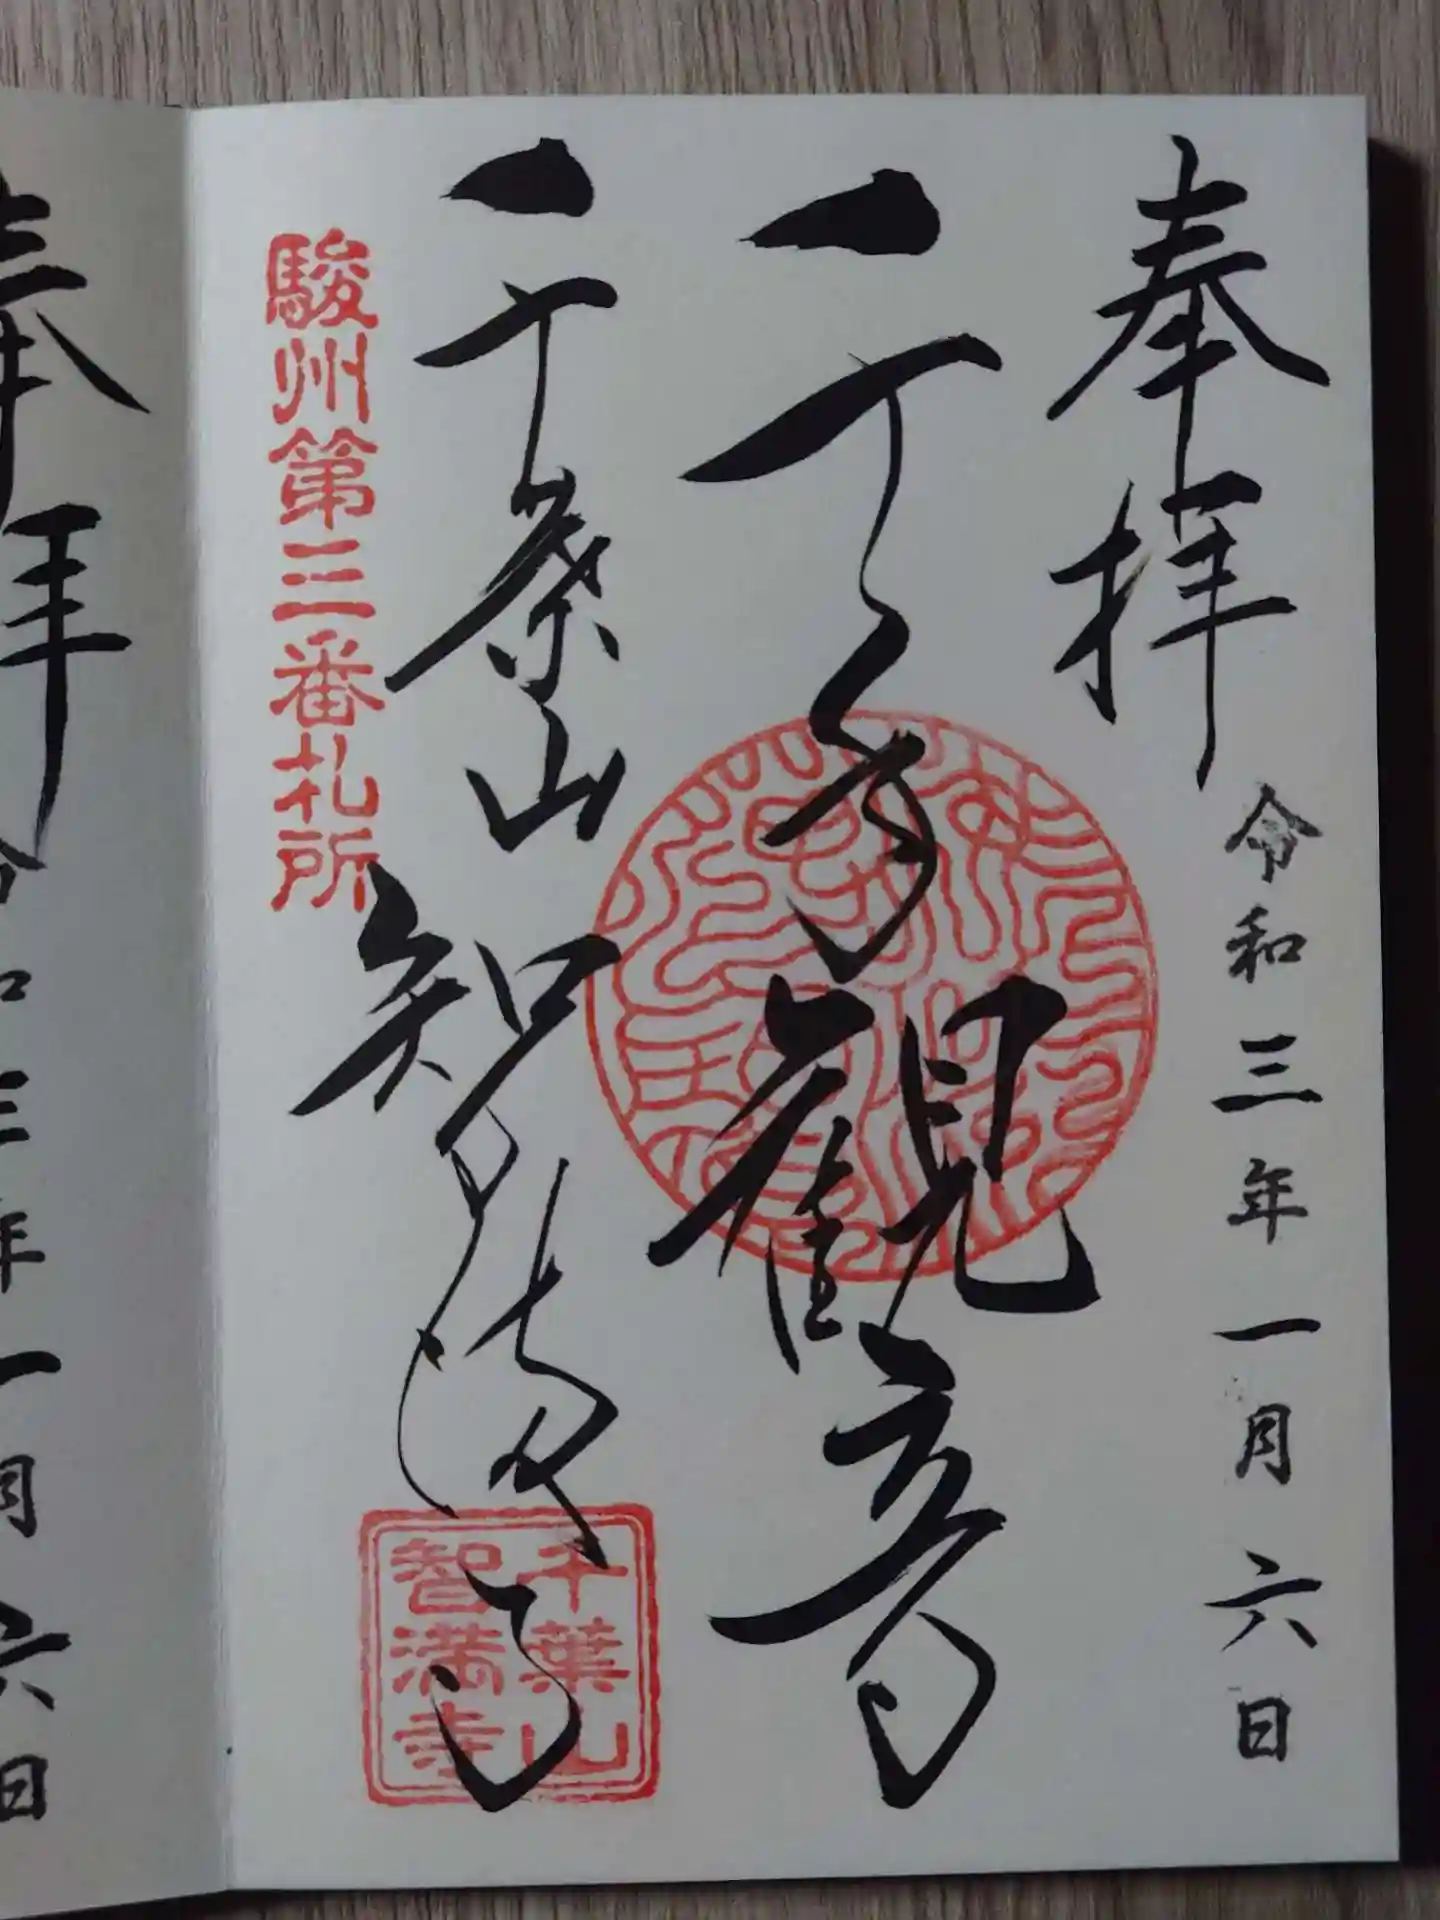 奉拝
令和三年一月六日
千手観音
千葉山智満寺
駿州第三番札所
千葉山
智満寺
奉拝
令和三年一月六日